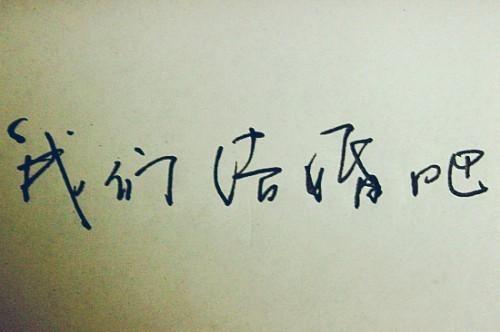 我们结婚吧